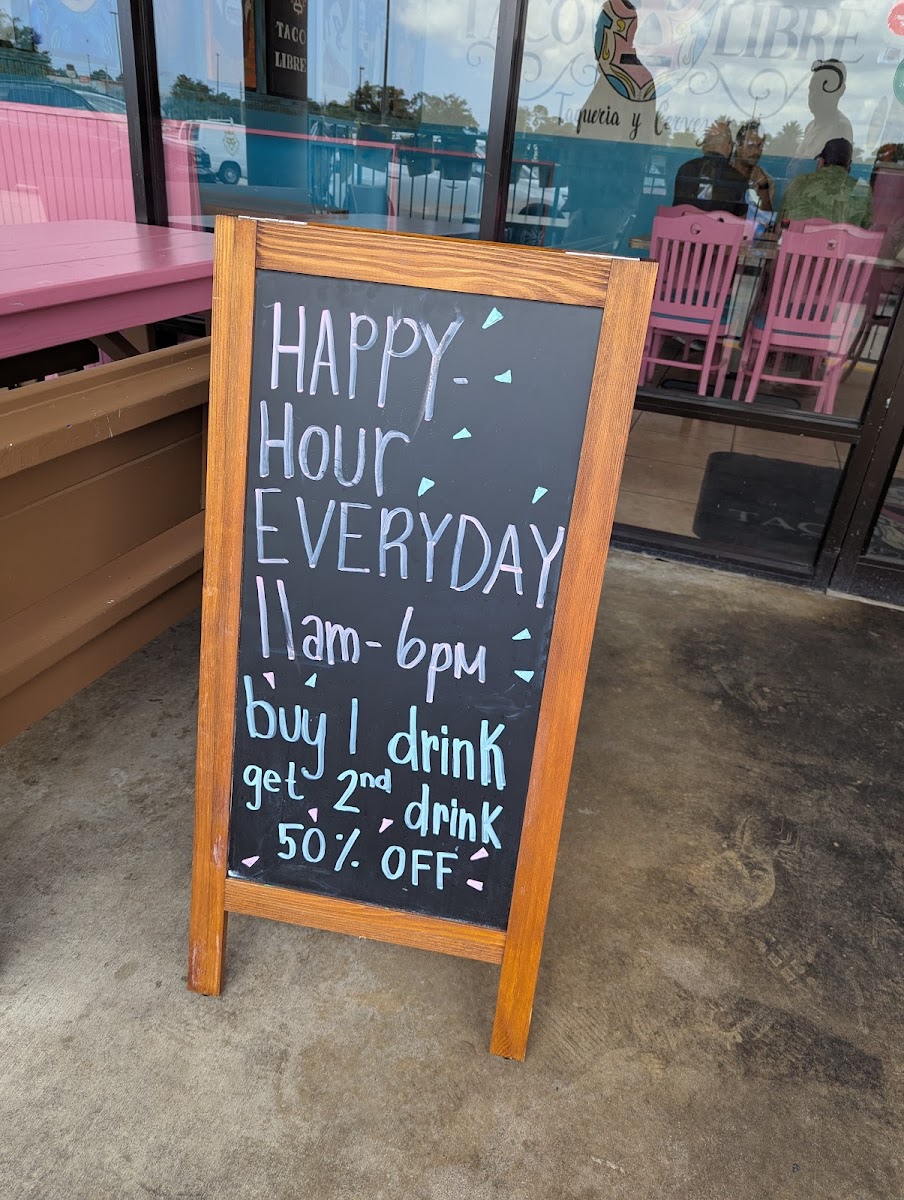 TACO
LIBRE
TACO LIBRE
Taqueria y
HAPPY-
HOUR
EVERYDAY
11am-6pm
buy 1 drink
get 2nd drink
50% OFF
TACO